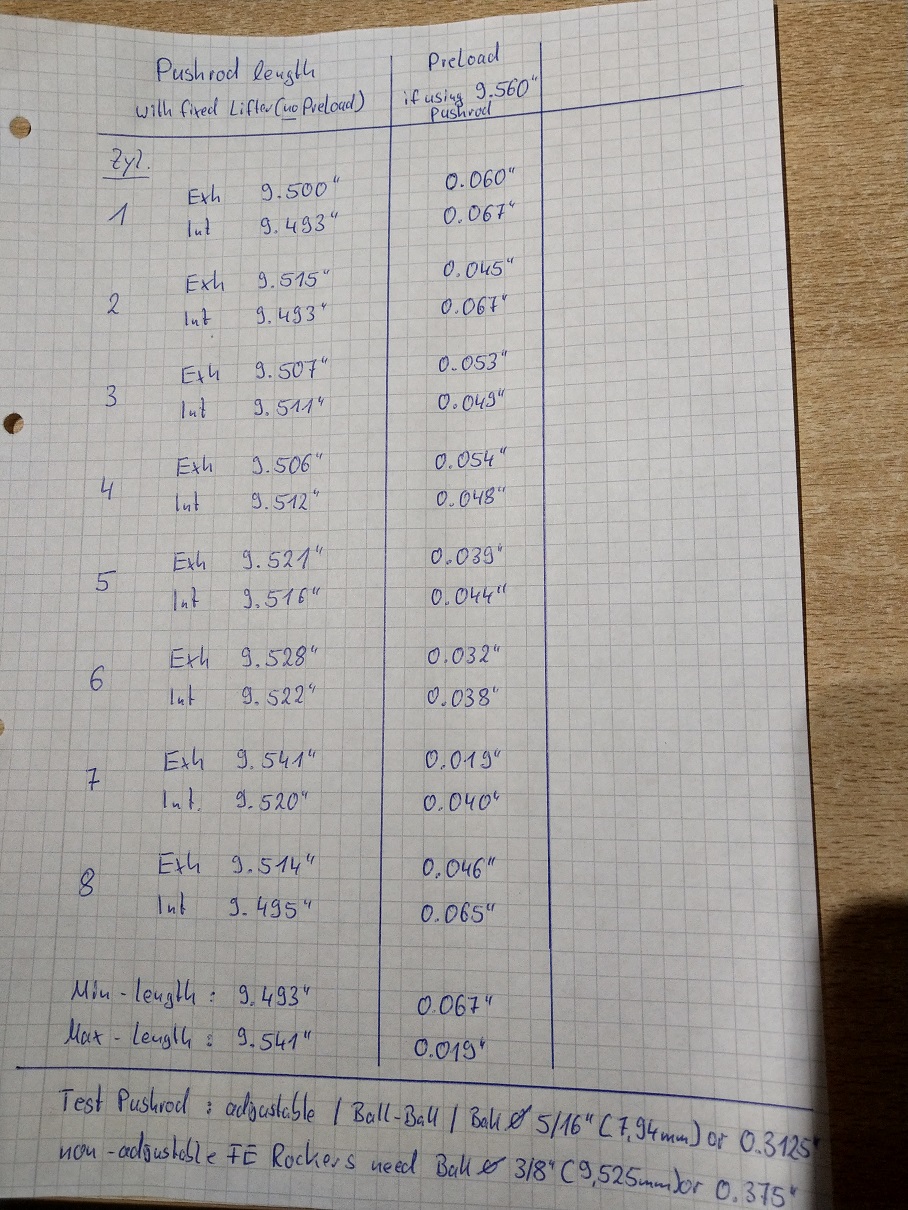 Pushrod length
with fixed Lifter (no Preload)
Preload
if using 9.560"
Pushrod
Zyl.
1 Exh 9.500" 0.060"
Int 9.493" 0.067"
2 Exh 9.515" 0.045"
Int 9.493" 0.067"
3 Exh 9.507" 0.053"
Int 9.511" 0.049"
4 Exh 9.506" 0.054"
Int 9.512" 0.048"
5 Exh 9.521" 0.039"
Int 9.516" 0.044"
6 Exh 9.528" 0.032"
Int 9.522" 0.038"
7 Exh 9.541" 0.019"
Int. 9.520" 0.040"
8 Exh 9.514" 0.046"
Int 9.495" 0.065"
Min-length: 9.493" 0.067"
Max-length: 9.541" 0.019"
Test Pushrod: adjustable / Ball-Ball / Ball ø 5/16" (7,94mm) or 0.3125"
non-adjustable FE Rockers need Ball ø 3/8" (9,525mm) or 0.375"